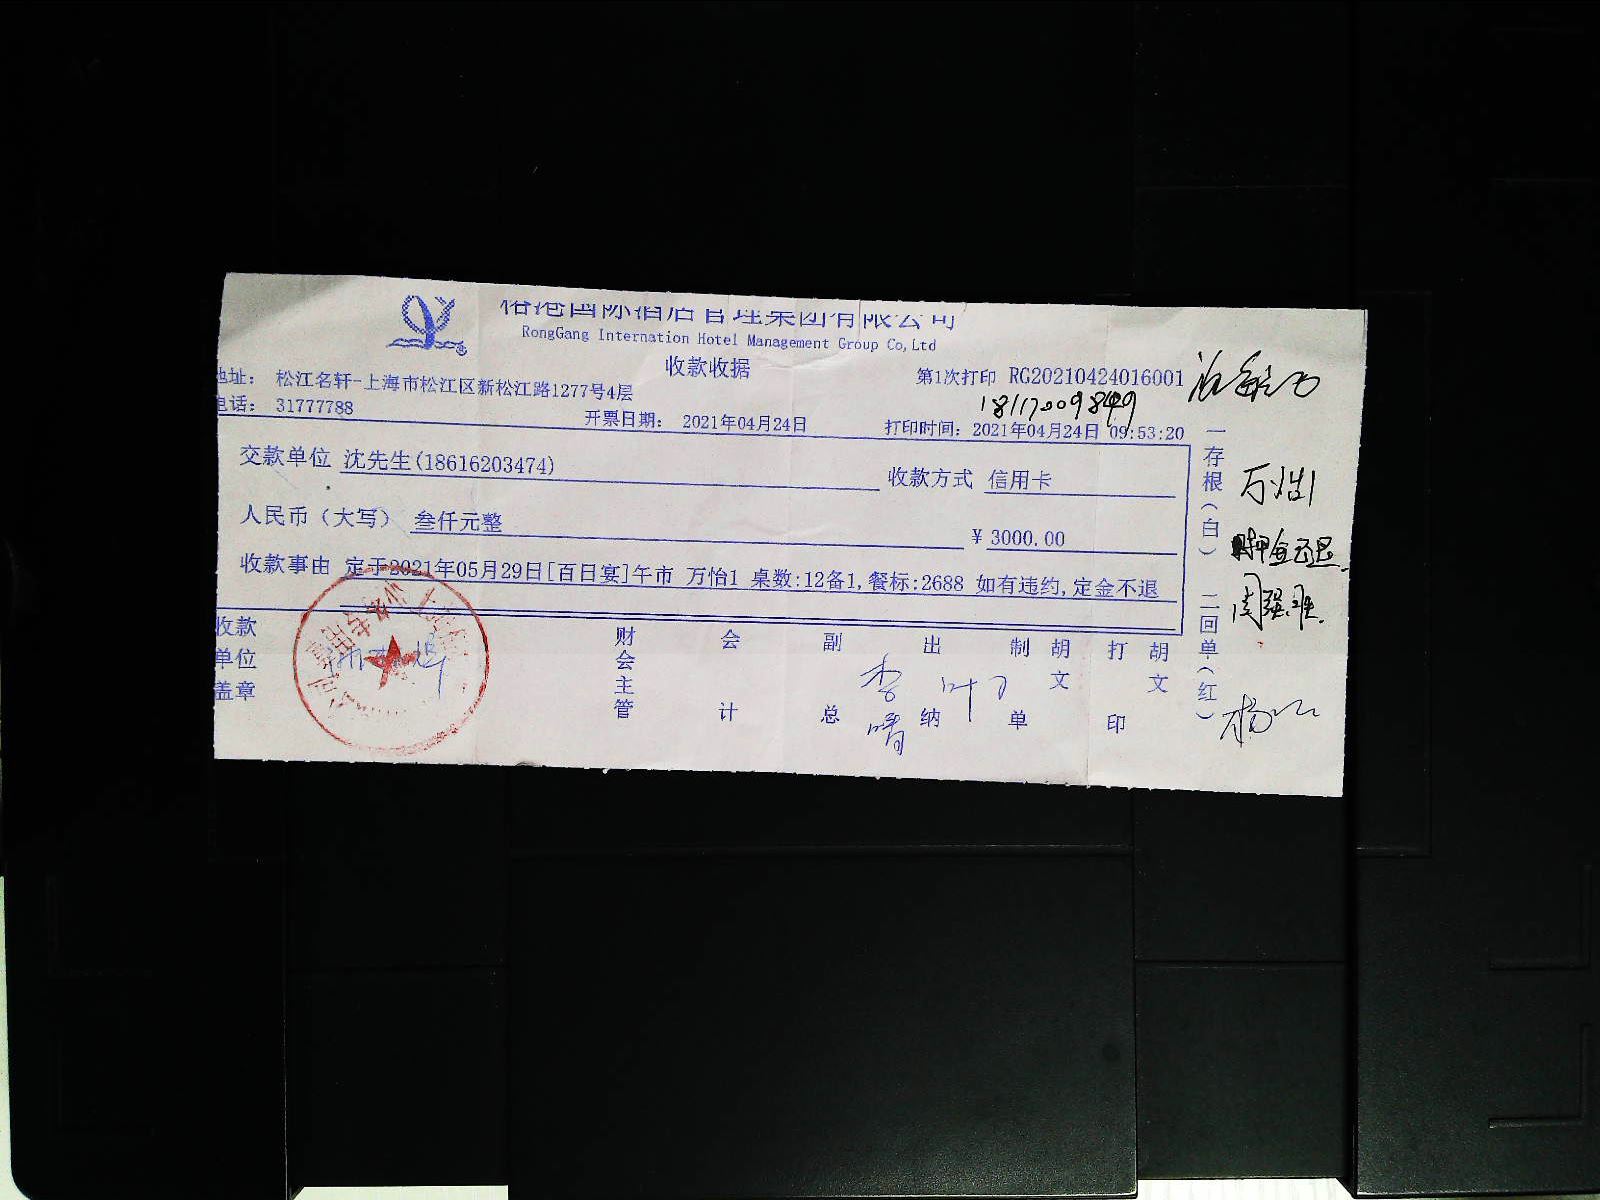 榕港国际酒店管理集团有限公司
RongGang Internation Hotel Management Group Co,Ltd
收款收据
地址： 松江名轩-上海市松江区新松江路1277号4层
第1次打印 RG20210424016001
电话： 31777788
18117009849
开票日期： 2021年04月24日
打印时间：2021年04月24日 09:53:20
交款单位 沈先生(18616203474)
收款方式 信用卡
人民币（大写） 叁仟元整
￥3000.00
收款事由 定于2021年05月29日[百日宴]午市 万怡1 桌数:12备1,餐标:2688 如有违约,定金不退
收款单位盖章
财会主管
会计
副总
李晴
出纳
制单
胡文
打印
胡文
一存根(白) 二回单(红)